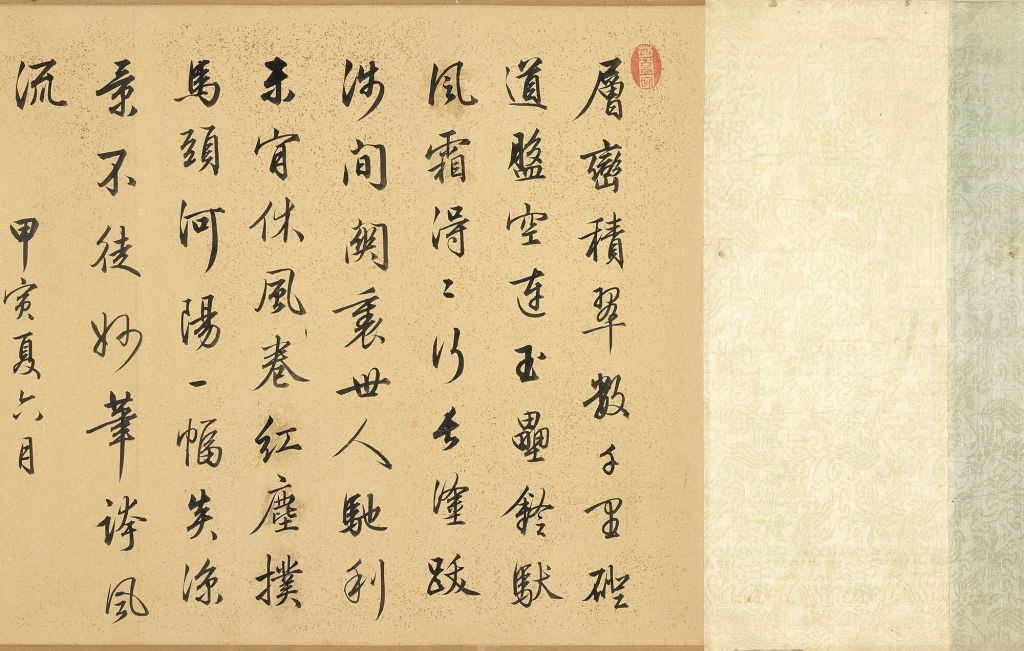 層巒積翠數千里磴
道盤空連玉壘鈴馱
風霜得〻行長塗跋
涉間關裏世人馳利
未甯休風卷紅塵撲
馬頭河陽一幅涼
景不徒妙筆誇風
流 甲寅夏六月